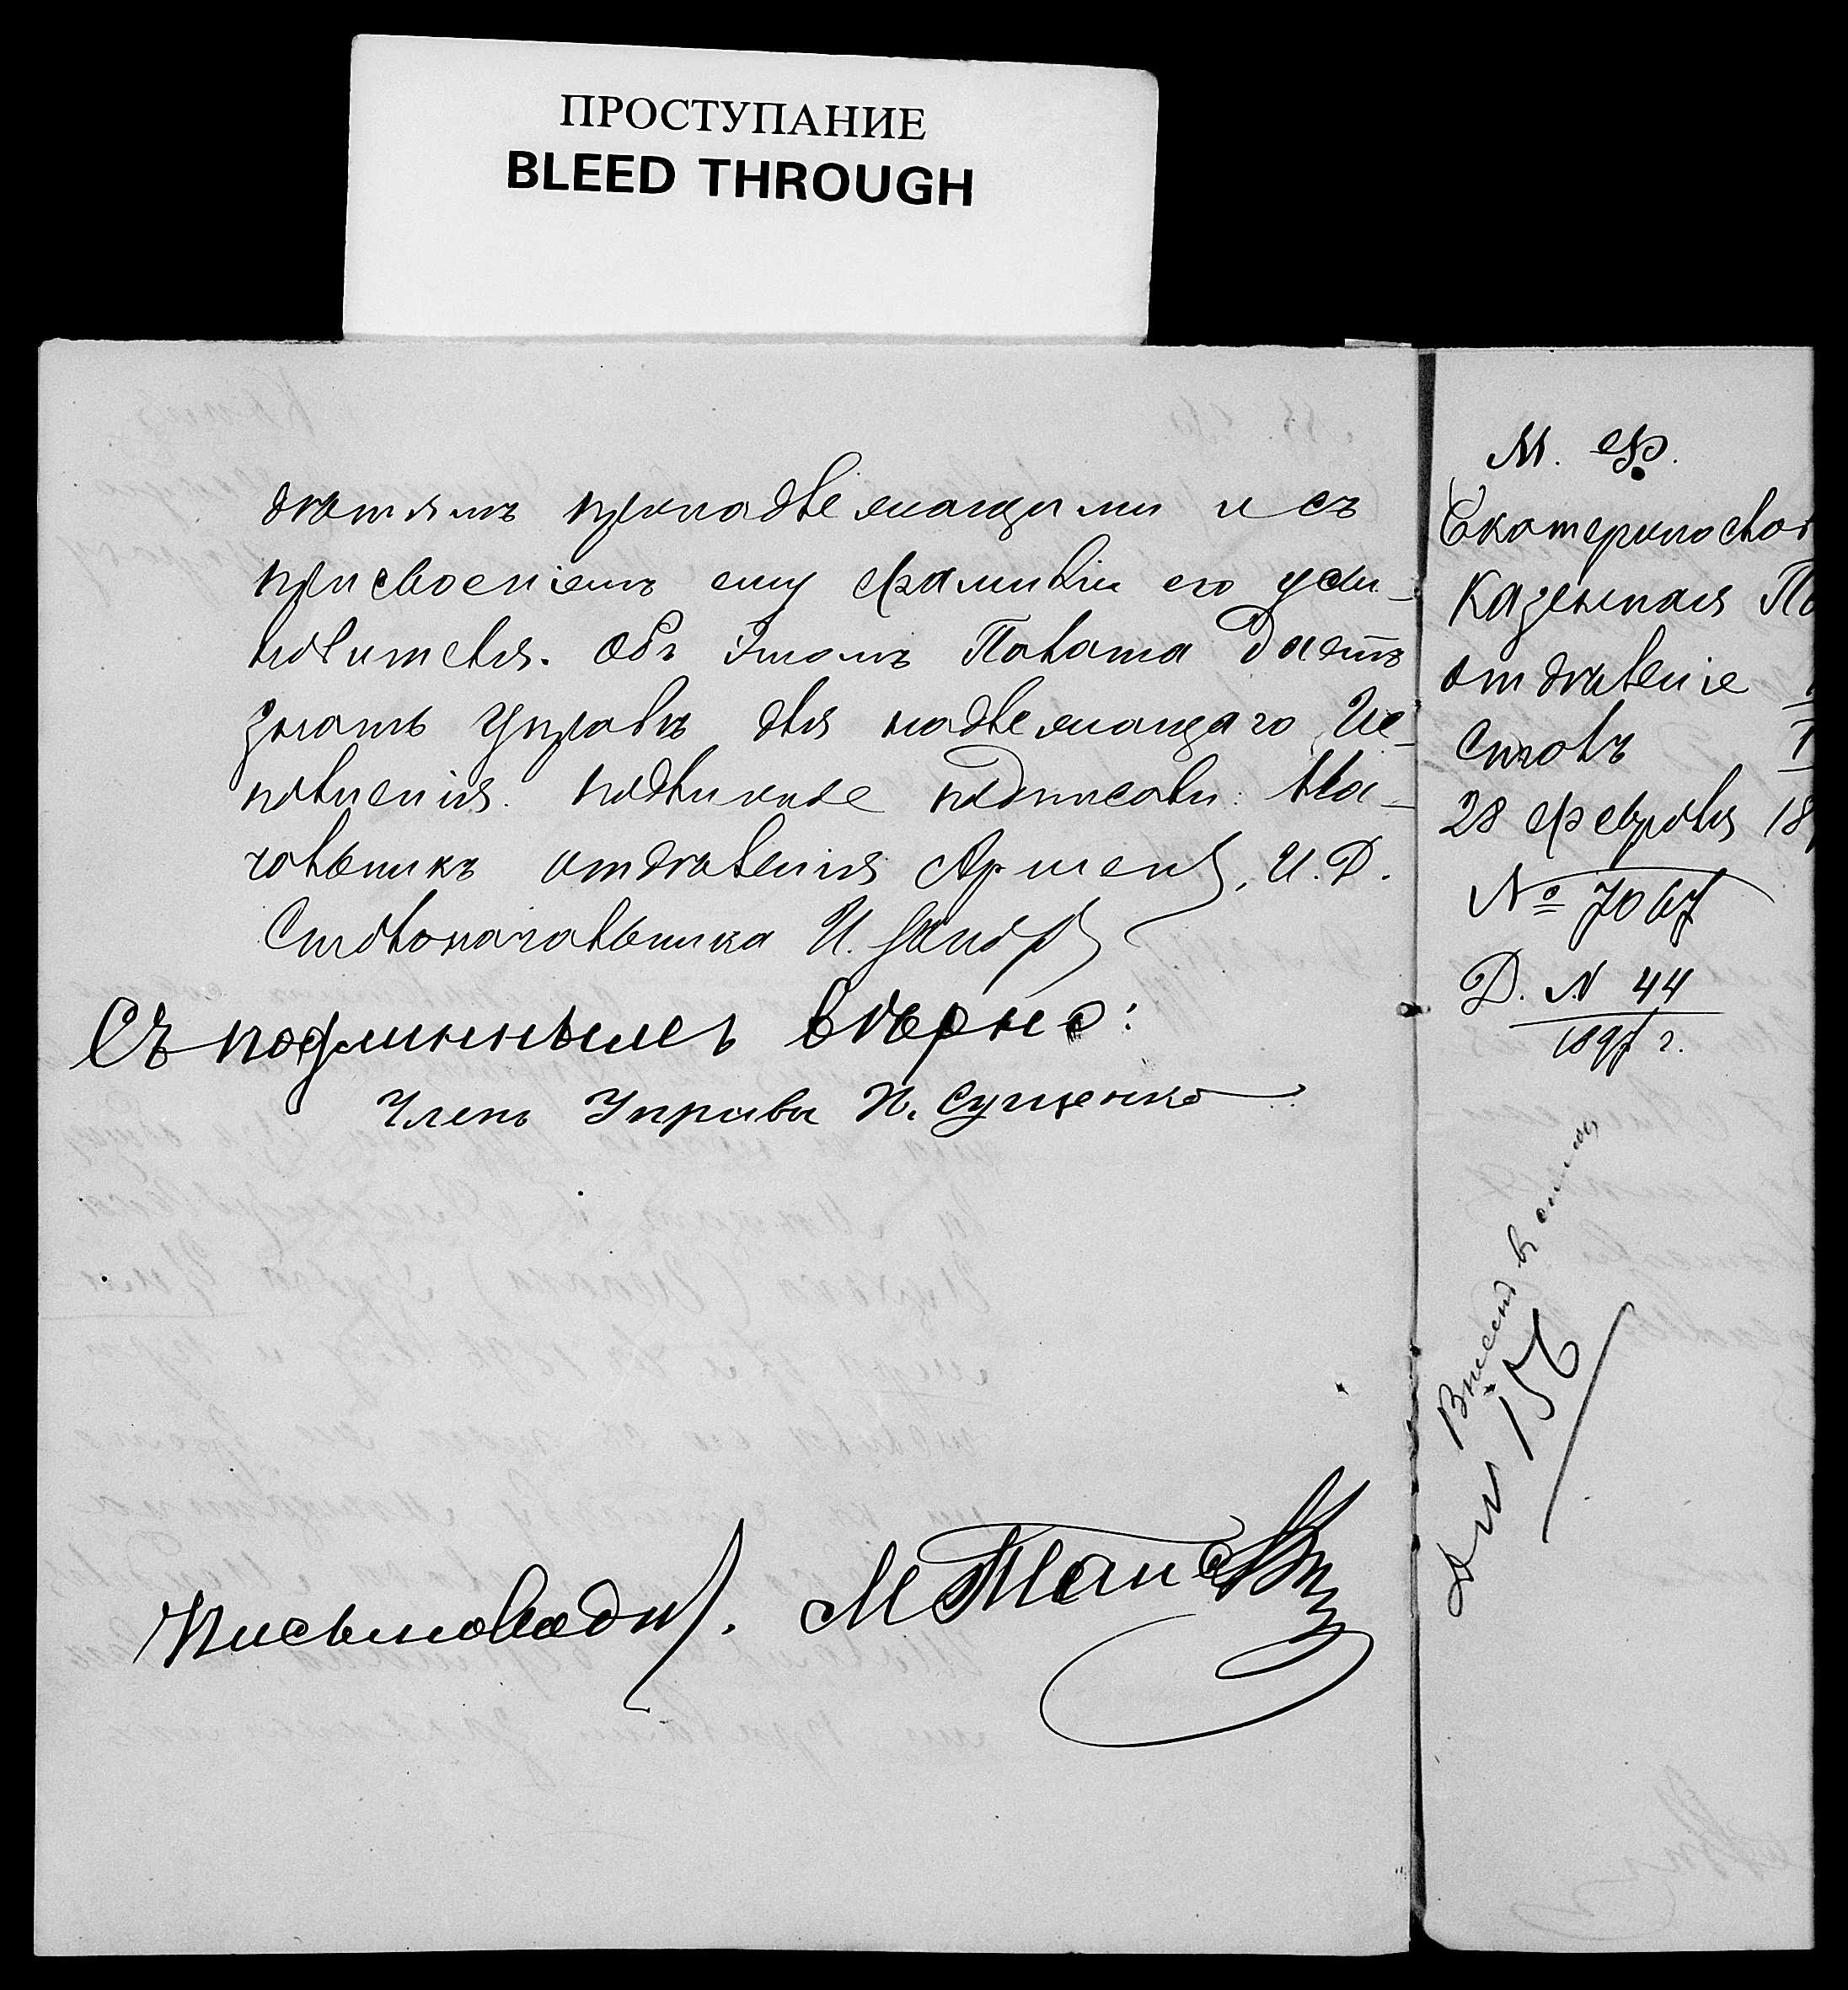 ПРОСТУПАНИЕ
BLEED THROUGH
дѣтямъ принадлежащими и съ
присвоеніемъ ему фамиліи его усы-
новителя. Объ этомъ Палата даетъ
знать Управѣ для надлежащаго Ис-
полненія. подлинное подписали: На-
чальникъ отдѣленія И. Д.
Столоначальника И.
Съ подлиннымъ вѣрно:
Членъ Управы И. Сущенко
Письмоводит. М
М. Ф.
Екатеринослав
Казенная Па
отдѣленіе
Столъ
28 февраля 18
№ 7067
Д. № 44
1897 г.
Внесено въ
156